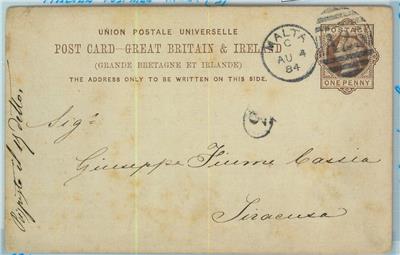 UNION POSTALE UNIVERSELLE
POST CARD—GREAT BRITAIN & IREL
(GRANDE BRETAGNE ET IRLANDE)
THE ADDRESS ONLY TO BE WRITTEN ON THIS SIDE.
MALTA
C
AU 4
84
POSTAGE
ONE PENNY
Sigr
Giuseppe Fiume Cassia
Siracusa